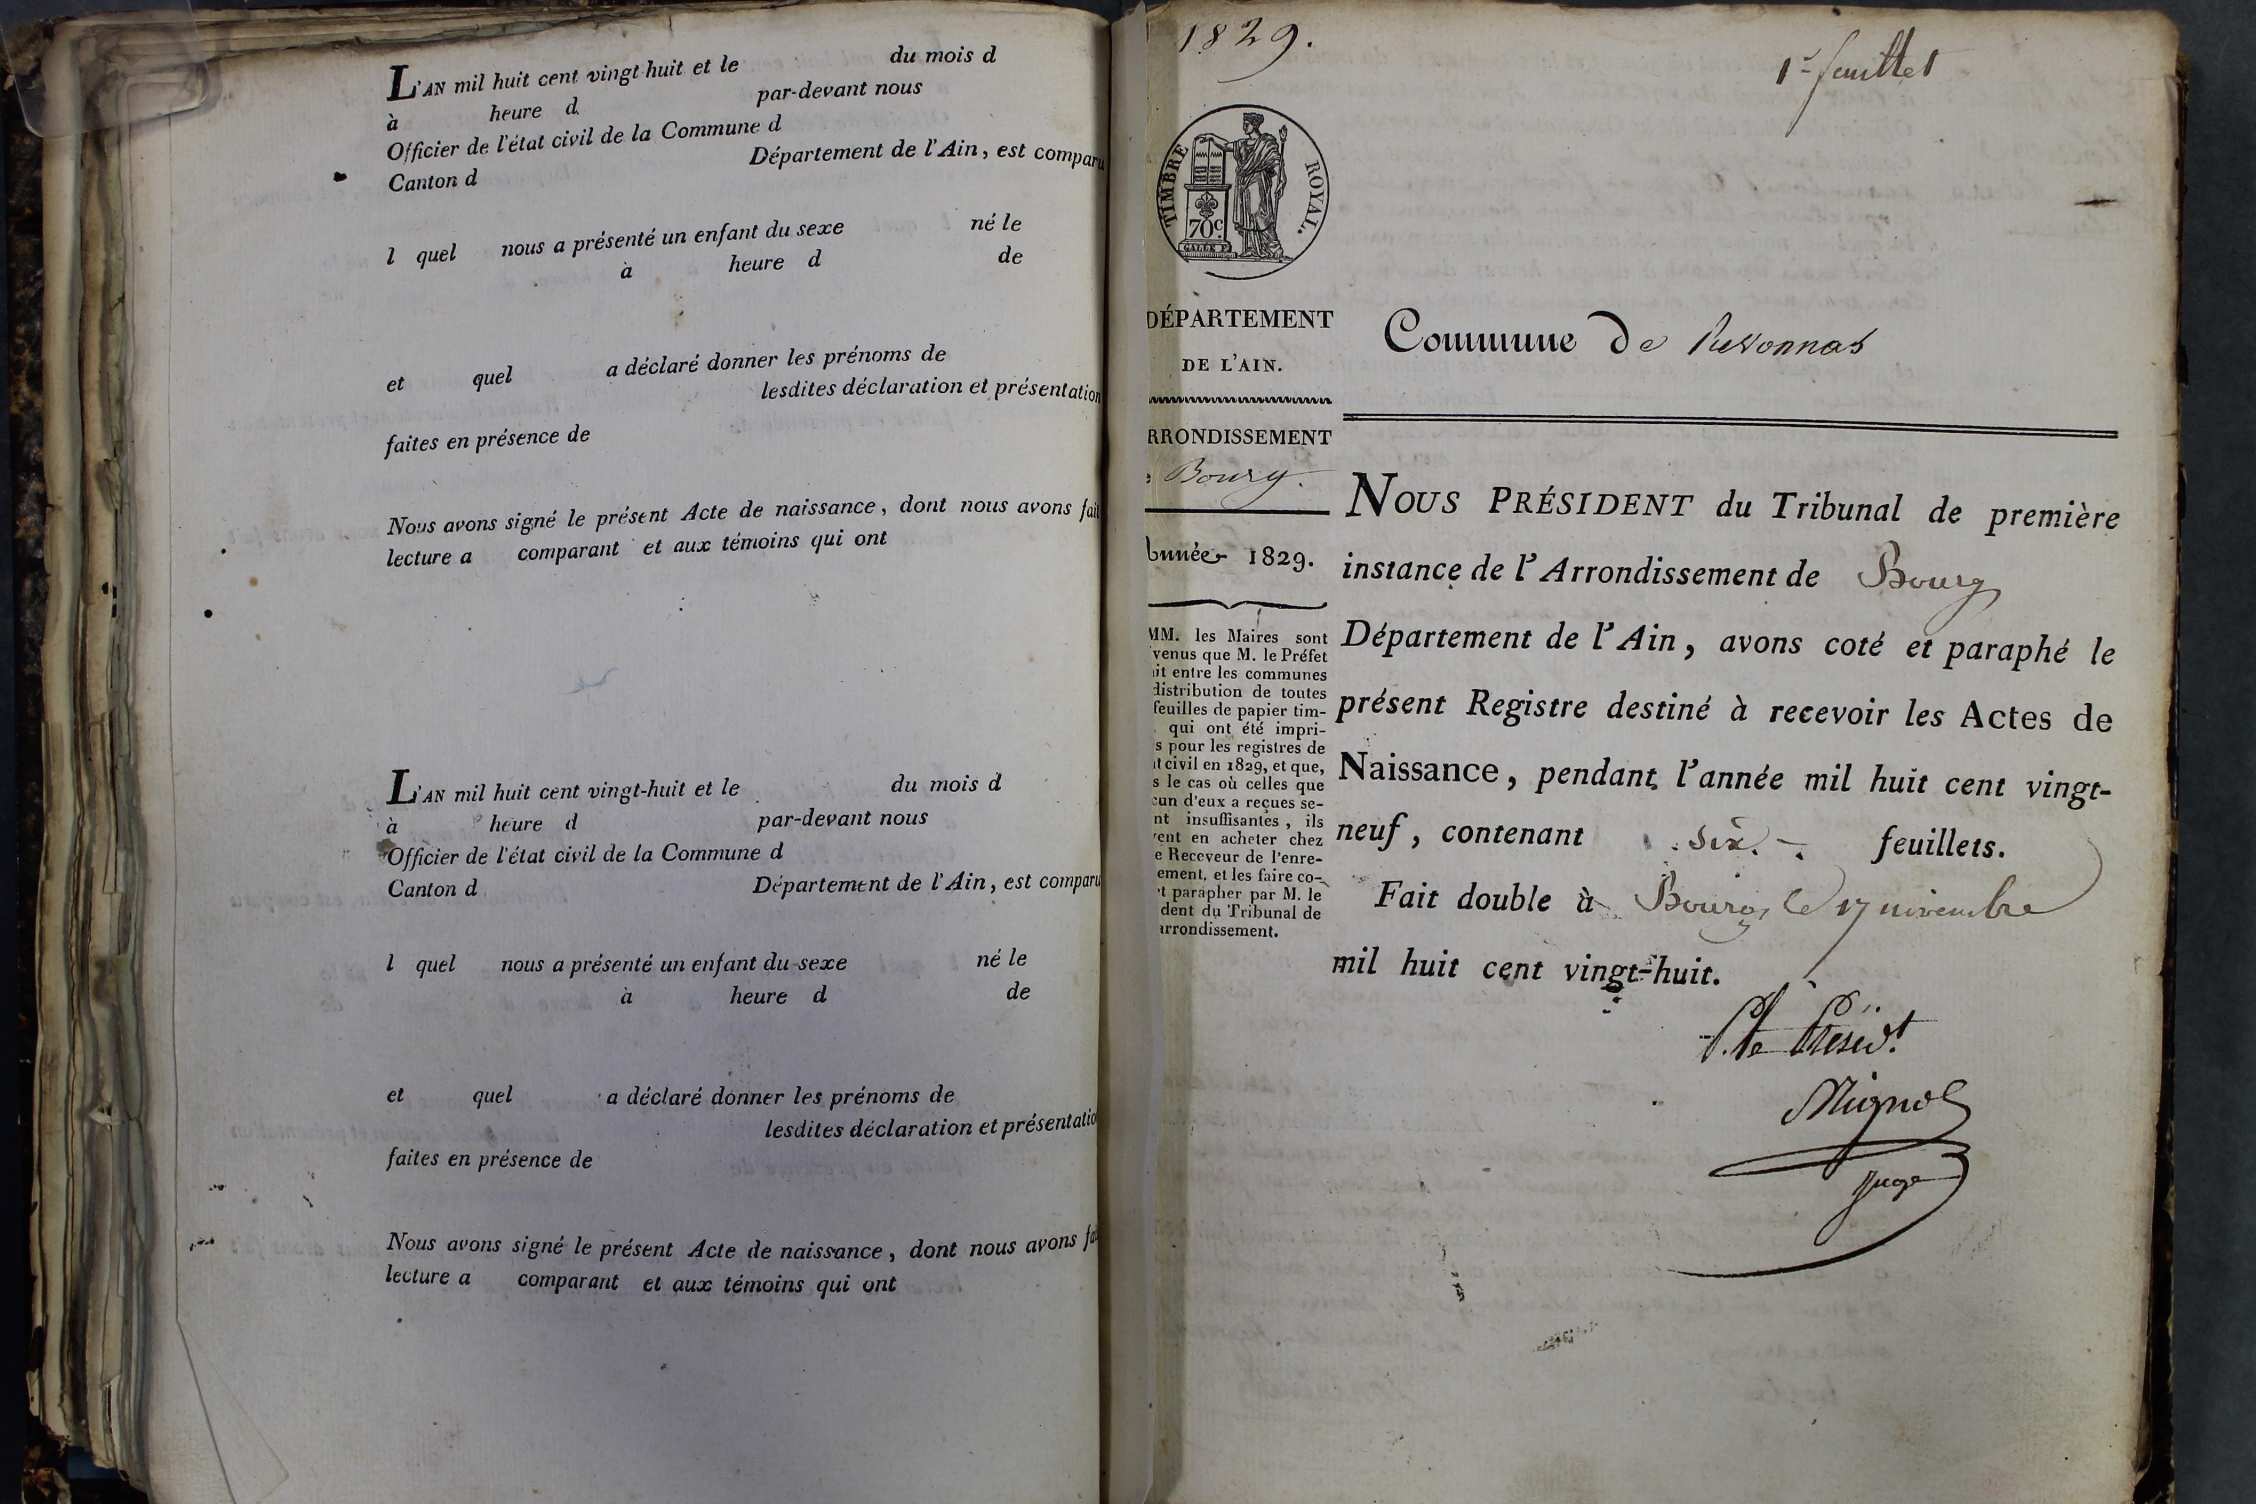 L'AN mil huit cent vingt-huit et le du mois d
à heure d par-devant nous
Officier de l'état civil de la Commune d
Canton d Département de l'Ain, est comparu
l quel nous a présenté un enfant du sexe né le
à heure d de
et quel a déclaré donner les prénoms de
lesdites déclaration et présentation
faites en présence de
Nous avons signé le présent Acte de naissance, dont nous avons fait
lecture a comparant et aux témoins qui ont
L'AN mil huit cent vingt-huit et le du mois d
à heure d par-devant nous
Officier de l'état civil de la Commune d
Canton d Département de l'Ain, est comparu
l quel nous a présenté un enfant du sexe né le
à heure d de
et quel a déclaré donner les prénoms de
lesdites déclaration et présentatio
faites en présence de
Nous avons signé le présent Acte de naissance, dont nous avons fai
lecture a comparant et aux témoins qui ont
1829.
1r feuillet
TIMBRE ROYAL.
70c.
GALLE F.
DÉPARTEMENT
DE L'AIN.
RRONDISSEMENT
e Bourg.
Année 1829.
MM. les Maires sont
venus que M. le Préfet
ait entre les communes
distribution de toutes
feuilles de papier tim-
qui ont été impri-
s pour les registres de
at civil en 1829, et que,
s le cas où celles que
cun d'eux a reçues se-
nt insuffisantes, ils
vent en acheter chez
e Receveur de l'enre-
ement, et les faire co-
t parapher par M. le
dent du Tribunal de
arrondissement.
Commune de Revonnas
NOUS PRÉSIDENT du Tribunal de première
instance de l'Arrondissement de Bourg
Département de l'Ain, avons coté et paraphé le
présent Registre destiné à recevoir les Actes de
Naissance, pendant l'année mil huit cent vingt-
neuf, contenant six feuillets.
Fait double à Bourg, le 17 novembre
mil huit cent vingt-huit.
P. le Présidt.
Mignot
juge